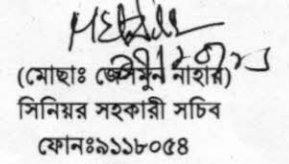 (মোছাঃ জেসমুন নাহার)
সিনিয়র সহকারী সচিব
ফোনঃ৯১১৮০৫৪